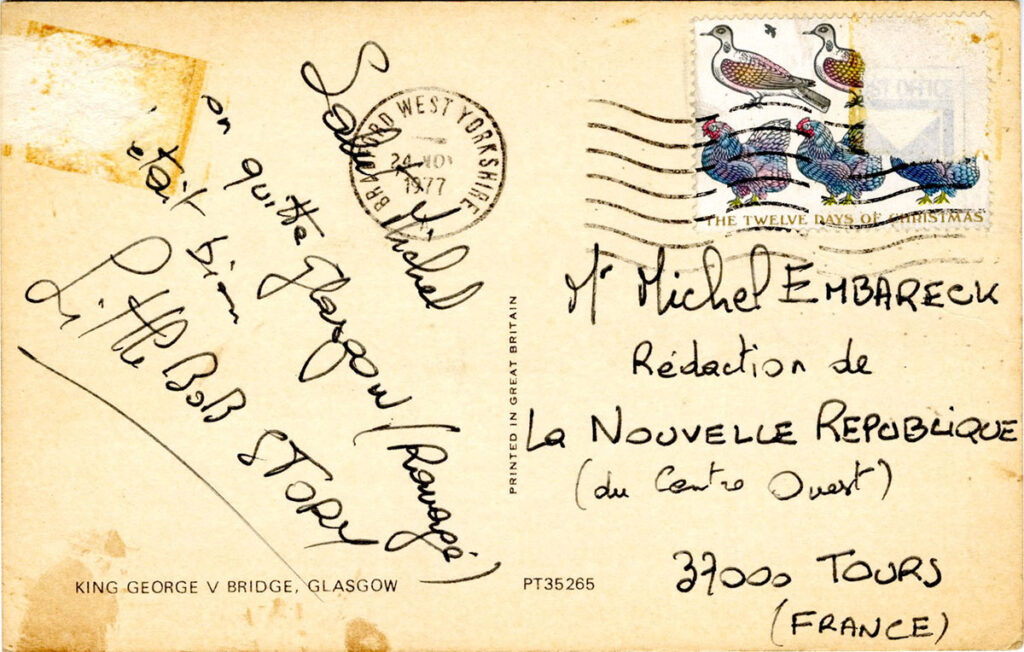 Salut Michel
on quitte Glasgow (Ravagé)
était bien
Little BoB STORY
BRADFORD WEST YORKSHIRE
24 NOV
1977
THE TWELVE DAYS OF CHRISTMAS
Mr Michel EMBARECK
Rédaction de
La NOUVELLE REPUBLIQUE
(du Centre Ouest)
37000 TOURS
(FRANCE)
PRINTED IN GREAT BRITAIN
KING GEORGE V BRIDGE, GLASGOW
PT35265